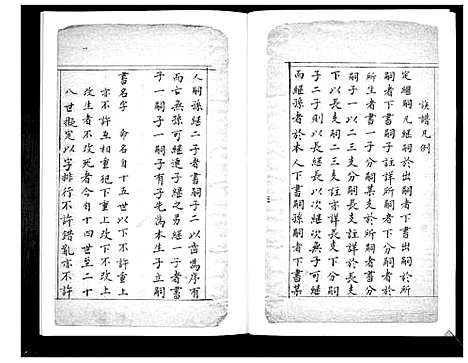 族譜凡例
定繼嗣凡繼嗣於出嗣者下書出嗣於所
嗣者下書嗣子註詳所嗣者下書分
所生者書一子分嗣某支於所嗣者書分
子書嗣一以二三支分嗣長支註詳於長支
下以長支嗣二三支註亦詳長支下分嗣
子二子則以長繼長以次繼次無子可繼
而繼孫者於本人下書嗣孫嗣者下書某
人嗣孫繼二子者書嗣子二以齒為序有
而亡無孫可繼連子繼之另繼一子者書
子一嗣子一嗣子有子先為本生子立嗣
書名字 命名自十五世以下不許重上
亦不許互相重犯下重上改下上下互重
改生者不改死者今自十四世至二十
八世擬定以字排行不許錯亂亦不許